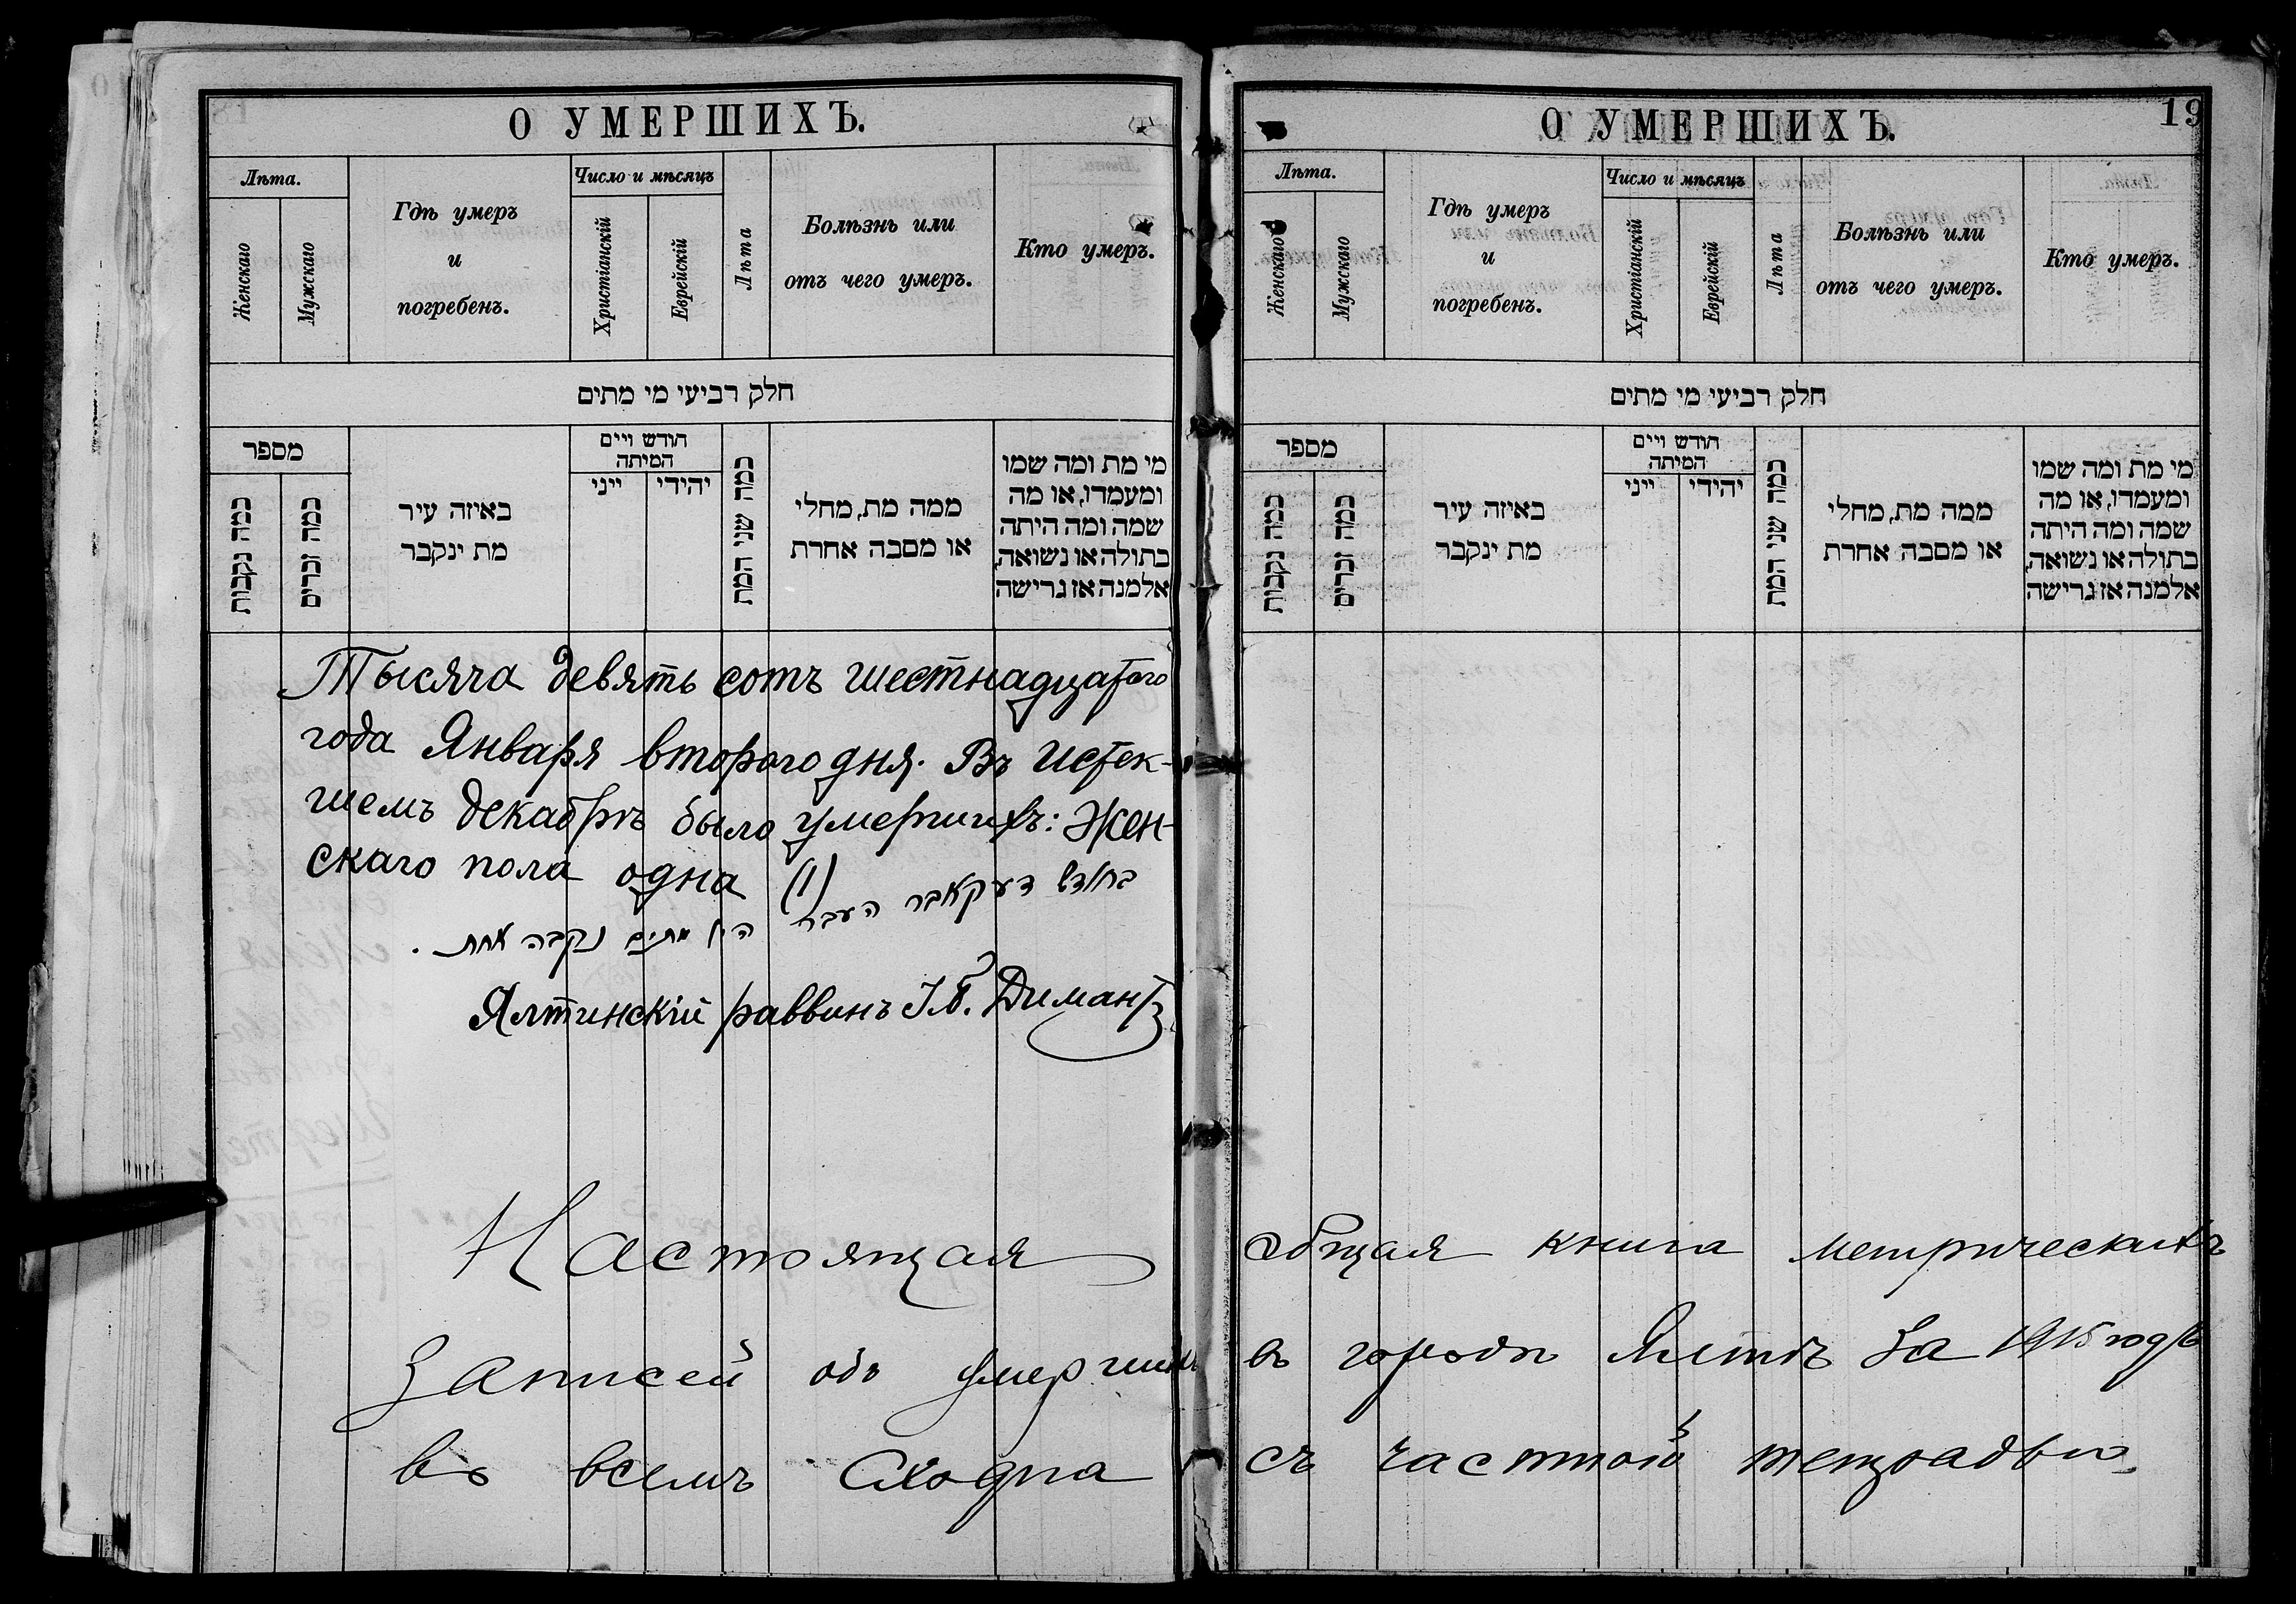 О УМЕРШИХЪ.
Лѣта.
Женскаго
Мужскаго
Гдѣ умеръ
и
погребенъ.
Число и мѣсяцъ
Христіанскій
Еврейскій
Лѣта
Болѣзнь или
отъ чего умеръ.
Кто умеръ.
חלק רביעי מי מתים
מספר
כמה נקבות
כמה זכרים
באיזה עיר
מת ינקבר
חודש ויים
המיתה
ייני
יהודי
כמה שני המת
ממה מת, מחלי
או מסבה אחרת
מי מת ומה שמו
ומעמדו, או מה
שמה ומה היתה
בתולה או נשואה,
אלמנה אז גרישה
Тысяча девять сотъ шестнадцатого
года Января второго дня. Въ истек-
шемъ декабрѣ было умершихъ: Жен-
скаго пола одна (1)
בחודש דעקאבר העבר
היו מתים נקבה אחת.
Ялтинскій раввинъ І.Б. Димантъ
О УМЕРШИХЪ.
19
Лѣта.
Женскаго
Мужскаго
Гдѣ умеръ
и
погребенъ.
Число и мѣсяцъ
Христіанскій
Еврейскій
Лѣта
Болѣзнь или
отъ чего умеръ.
Кто умеръ.
חלק רביעי מי מתים
מספר
כמה נקבות
כמה זכרים
באיזה עיר
מת ינקבר
חודש ויים
המיתה
ייני
יהודי
כמה שני המת
ממה מת, מחלי
או מסבה אחרת
מי מת ומה שמו
ומעמדו, או מה
שמה ומה היתה
בתולה או נשואה,
אלמנה אז גרישה
Настоящая общая книга метрическихъ
записей объ умершихъ въ городѣ Ялтѣ за 1915 годъ
во всемъ сходна съ частной тетрадью